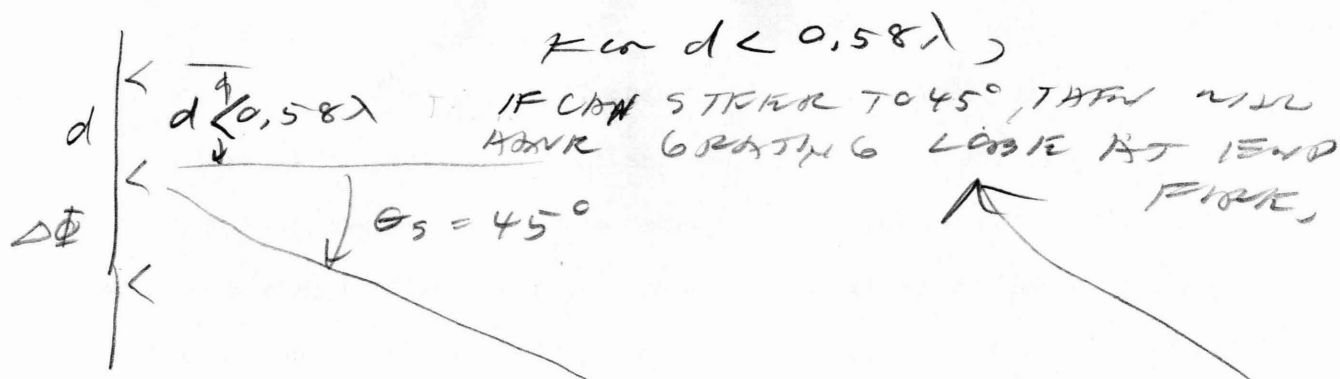 For d < 0,58λ,
d < 0,58λ
IF CAN STEER TO 45°, THEN WILL
HAVE GRATING LOBE AT END
FIRE,
d
ΔΦ
θs = 45°